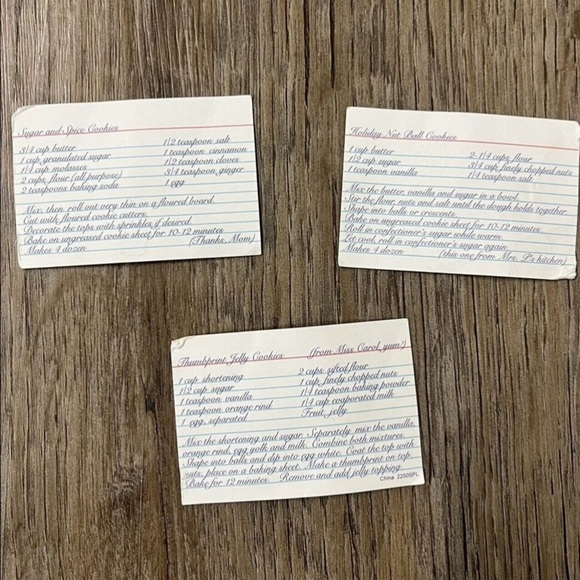 Sugar and Spice Cookies
3/4 cup butter
1 cup granulated sugar
1/4 cup molasses
2 cups flour (all purpose)
2 teaspoons baking soda
1/2 teaspoon salt
1 teaspoon cinnamon
1/2 teaspoon cloves
3/4 teaspoon ginger
1 egg
Mix, then roll out very thin on a floured board.
Cut with floured cookie cutters.
Decorate the tops with sprinkles if desired.
Bake on ungreased cookie sheet for 10-12 minutes.
Makes 4 dozen (Thanks, Mom)
Holiday Nut Ball Cookies
1 cup butter
1/2 cup sugar
1 teaspoon vanilla
2-1/4 cups flour
3/4 cup finely chopped nuts
1/4 teaspoon salt
Mix the butter, vanilla and sugar in a bowl.
Stir the flour, nuts and salt until the dough holds together.
Shape into balls or crescents.
Bake on ungreased cookie sheet for 10-12 minutes.
Roll in confectioner's sugar while warm.
Let cool, roll in confectioner's sugar again.
Makes 4 dozen (this one from Mrs. P.'s kitchen)
Thumbprint Jelly Cookies (from Miss Carol, yum!)
1 cup shortening
1/2 cup sugar
1 teaspoon vanilla
1 teaspoon orange rind
1 egg, separated
2 cups sifted flour
1 cup finely chopped nuts
1/4 teaspoon baking powder
1/4 cup evaporated milk
Fruit jelly
Mix the shortening and sugar. Separately mix the vanilla,
orange rind, egg yolk and milk. Combine both mixtures.
Shape into balls and dip into egg white. Coat the top with
nuts, place on a baking sheet. Make a thumbprint on top.
Bake for 12 minutes. Remove and add jelly topping.
China 22505PL